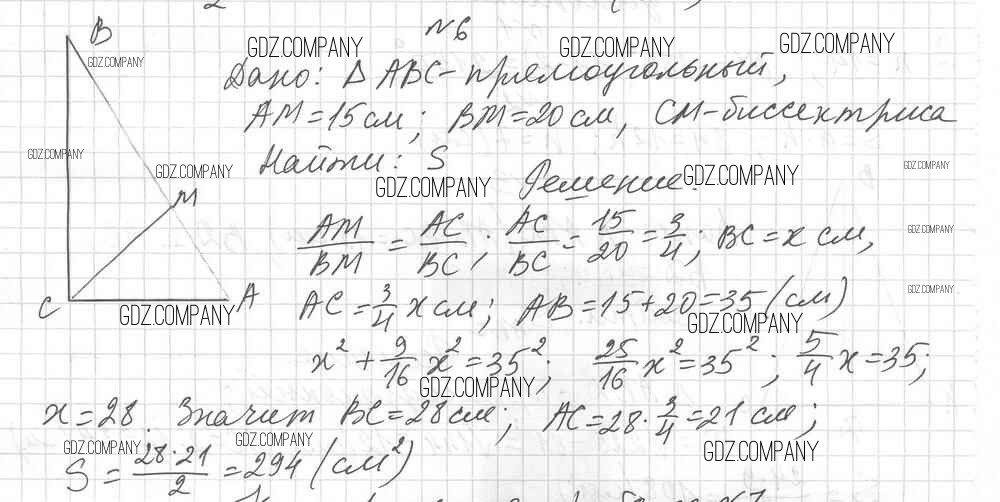 N6
B
GDZ.COMPANY GDZ.COMPANY GDZ.COMPANY
GDZ.COMPANY
Дано: Δ ABC - прямоугольный,
AM = 15 см; BM = 20 см, CM - биссектриса
GDZ.COMPANY
Найти: S
GDZ.COMPANY GDZ.COMPANY GDZ.COMPANY GDZ.COMPANY
Решение:
M
AM/BM = AC/BC; AC/BC = 15/20 = 3/4; BC = x см,
GDZ.COMPANY
C A
AC = 3/4 x см; AB = 15 + 20 = 35 (см)
GDZ.COMPANY
GDZ.COMPANY GDZ.COMPANY
x² + 9/16 x² = 35²; 25/16 x² = 35²; 5/4 x = 35;
GDZ.COMPANY
x = 28. Значит BC = 28 см; AC = 28 · 3/4 = 21 см;
GDZ.COMPANY GDZ.COMPANY GDZ.COMPANY
S = 28·21/2 = 294 (см²)